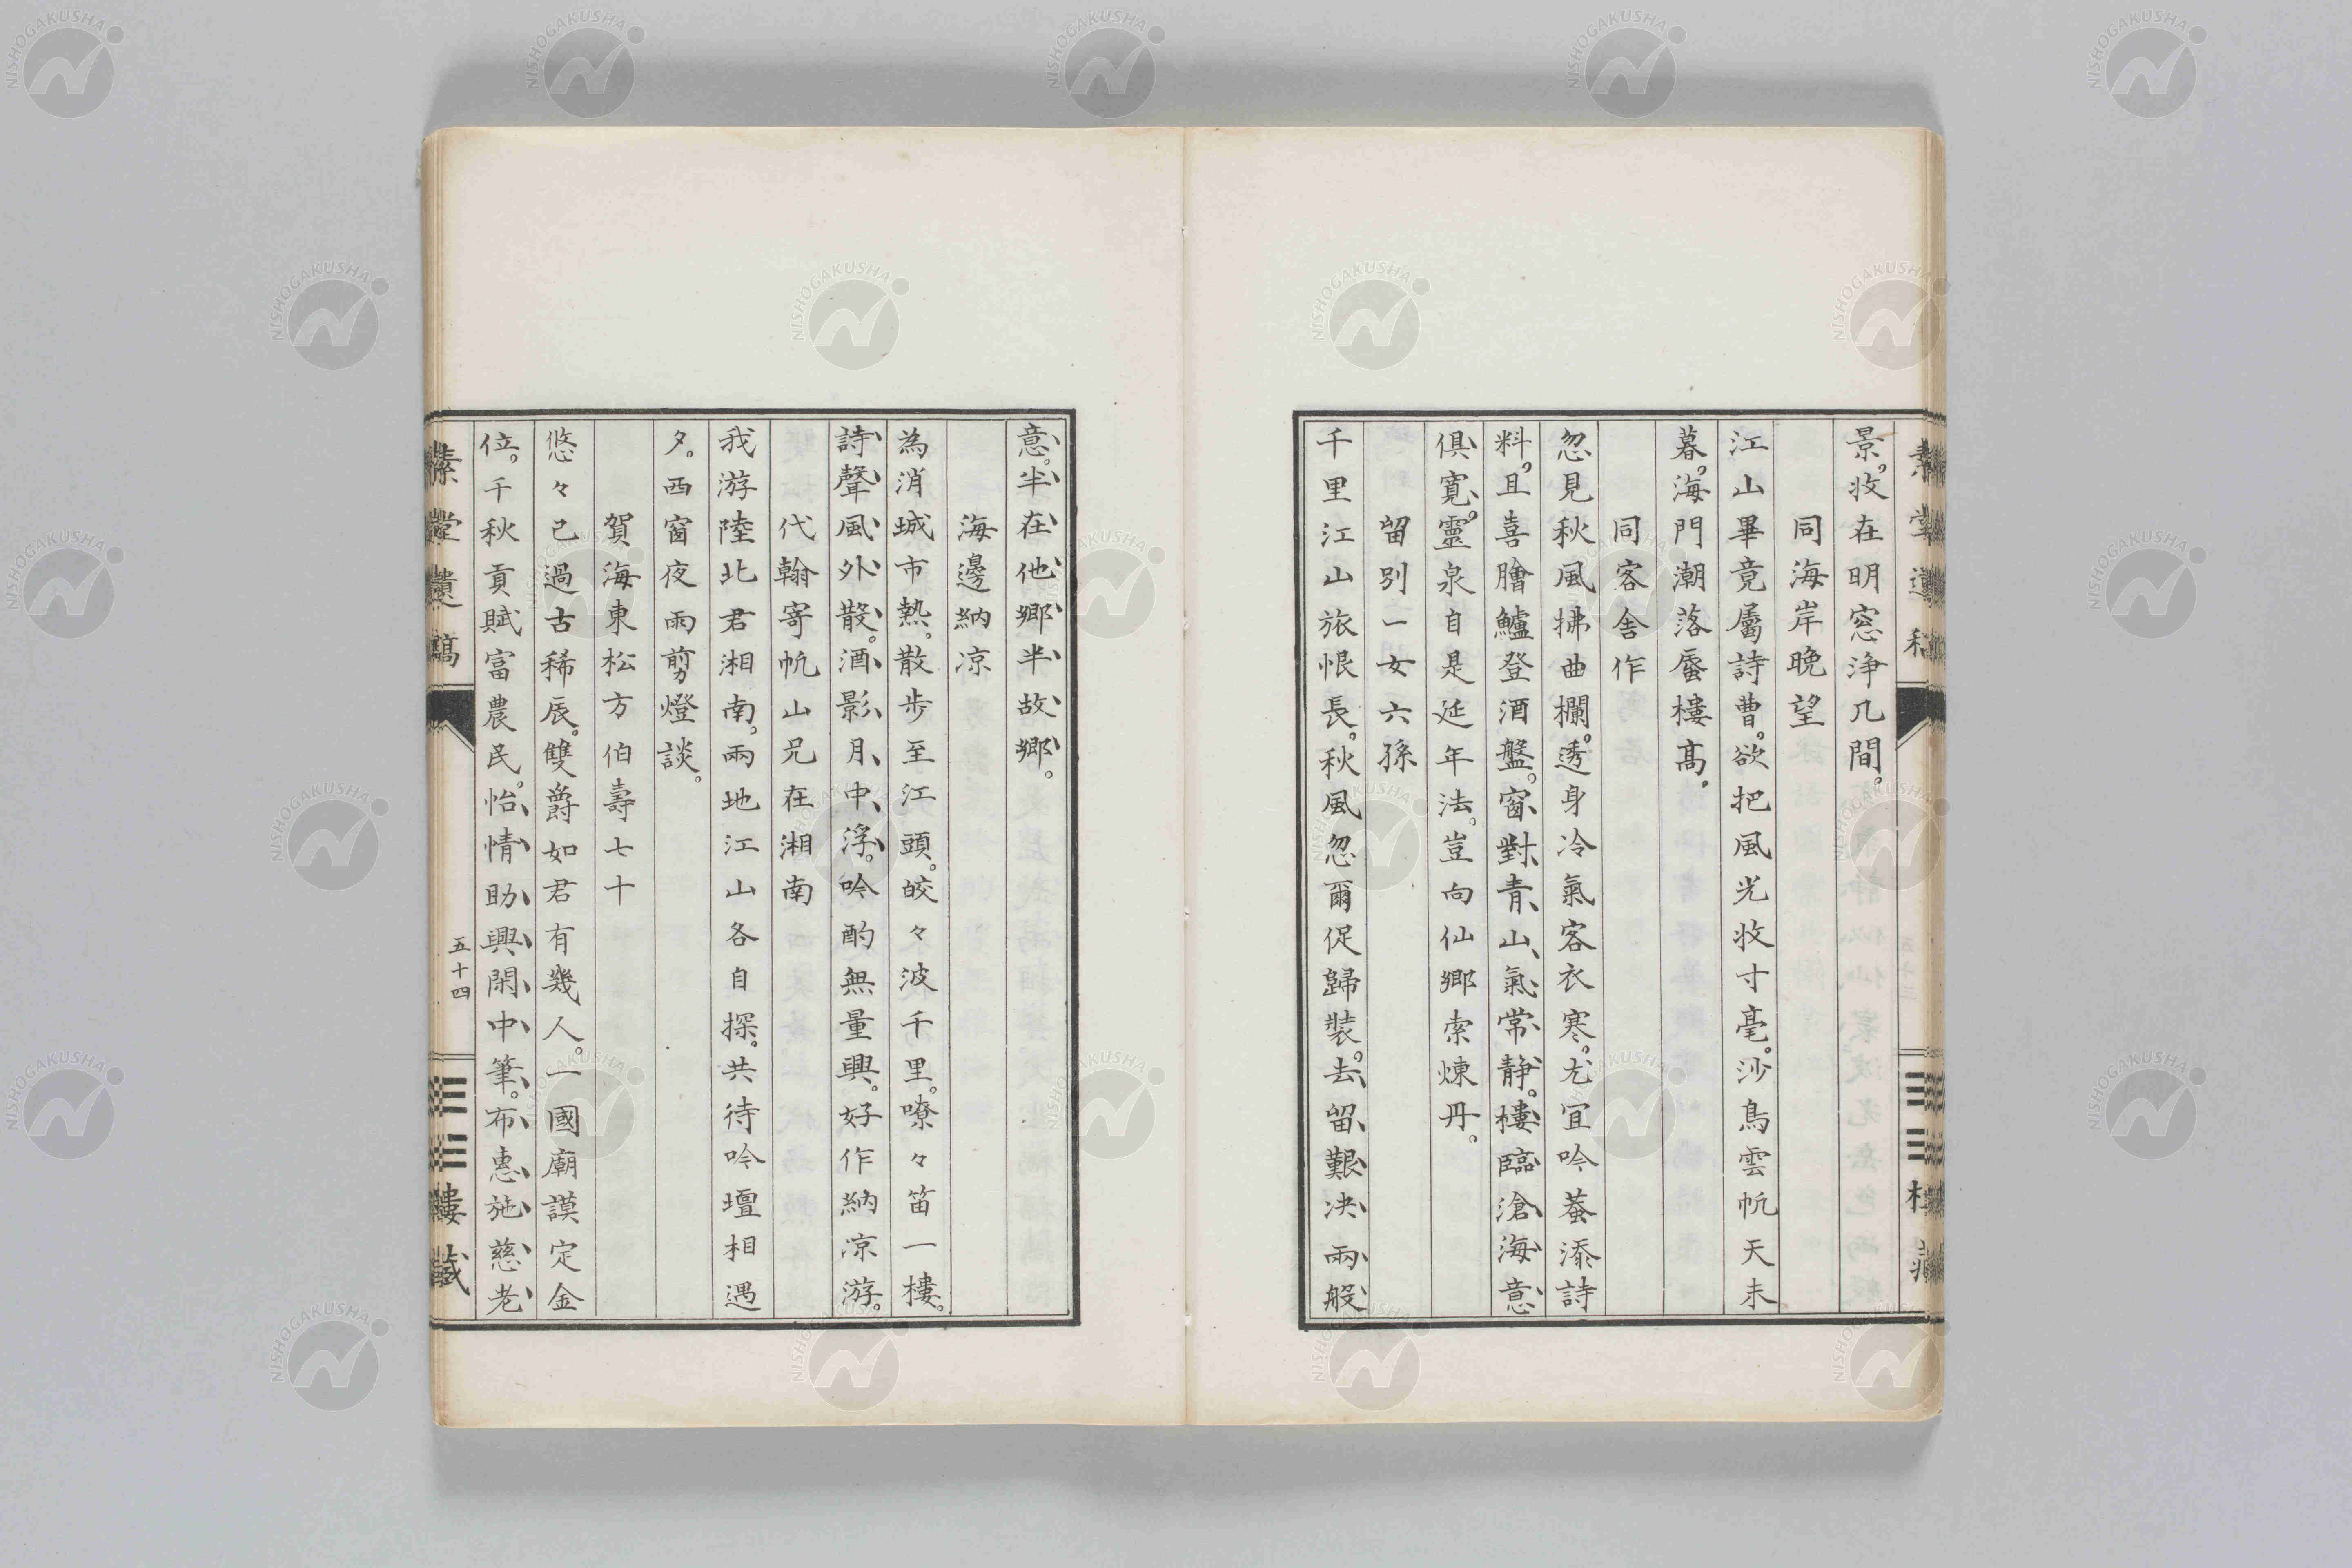 景。收在明窓浄几間。
同海岸晩望
江山畢竟屬詩曹。欲把風光收寸毫。沙鳥雲帆天未
暮。海門潮落蜃樓高。
同客舍作
忽見秋風拂曲欄。透身冷氣客衣寒。尤宜吟蓋添詩
料。且喜膾鱸登酒盤。窗對青山氣常静。樓臨滄海意
俱寛。靈泉自是延年法。豈向仙鄉索煉丹。
留別一女六孫
千里江山旅恨長。秋風忽爾促歸裝。去留艱決兩般
意。半在他鄉半故鄉。
海邊納凉
為消城市熱。散歩至江頭。皎々波千里。嘹々笛一樓。
詩聲風外散。酒影月中浮。吟酌無量興。好作納凉游。
代翰寄帆山兄在湘南
我游陸北君湘南。兩地江山各自探。共待吟壇相遇
夕。西窗夜雨剪燈談。
賀海東松方伯壽七十
悠々已過古稀辰。雙爵如君有幾人。一國廟謨定金
位。千秋貢賦富農民。怡情助興閑中筆。布惠施慈老
遺稿
五十四
三三樓藏
NISHOGAKUSHA